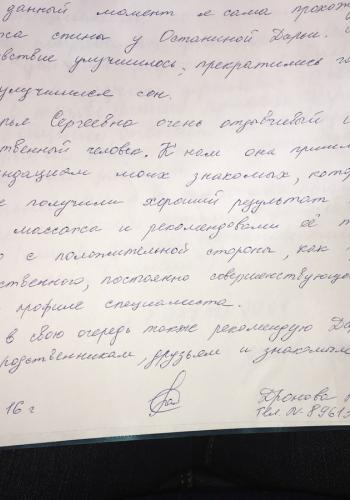 данный момент я сама прохо
са спины у Останиной Дарьи.
вствие улучшилось, прекратились г
улучшился сон.
рья Сергеевна очень отзывчивый и
ственный человек. К нам она пришл
ендациям моих знакомых, кото
е получили хороший результат
массажа и рекомендовали её
о с положительной стороны, как
ственного, постоянно совершенствующе
профиле специалиста.
в свою очередь также рекомендую Да
родственникам, друзьям и знакомым
16 г
Дронова
Тел. № 8961